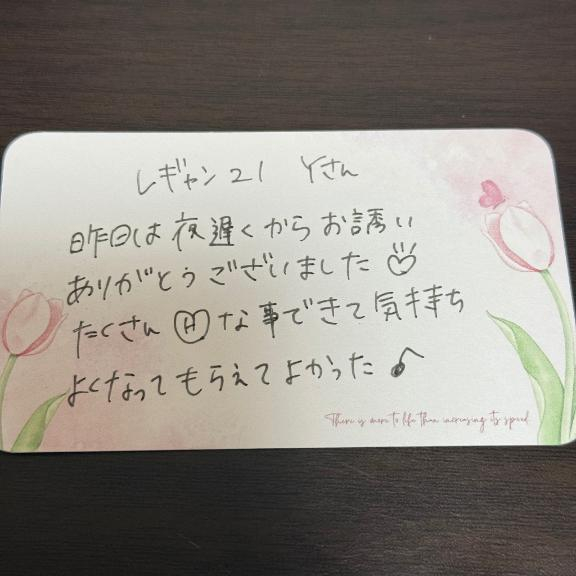 レギャン21 Yさん
昨日は夜遅くからお誘い
ありがとうございました
たくさんⒽな事できて気持ち
よくなってもらえてよかった♪
There is more to life than increasing its speed